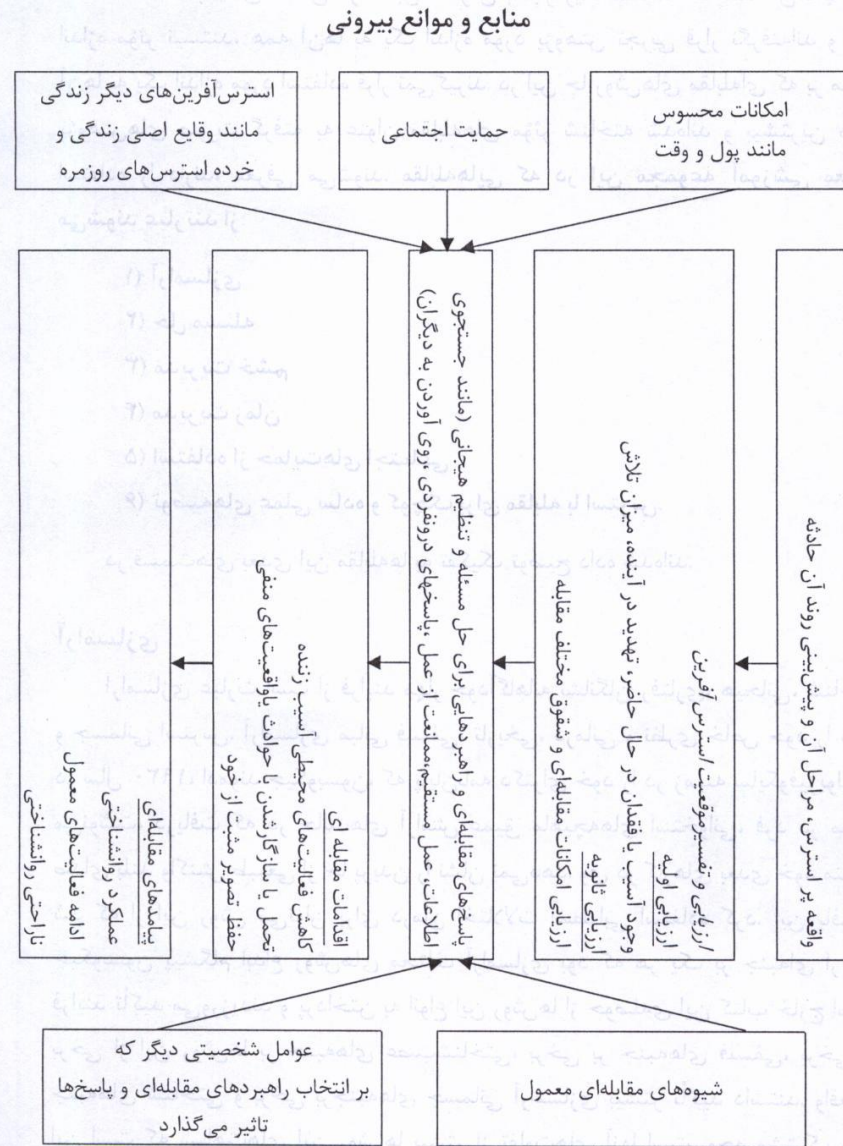 منابع و موانع بیرونی
امکانات محسوس
مانند پول و وقت
حمایت اجتماعی
استرس‌آفرین‌های دیگر زندگی
مانند وقایع اصلی زندگی و
خرده استرس‌های روزمره
واقعه پر استرس، مراحل آن و پیش‌بینی روند آن حادثه
ارزیابی و تفسیر موقعیت استرس‌آفرین
ارزیابی اولیه
وجود آسیب یا فقدان در حال حاضر، تهدید در آینده، میزان تلاش
ارزیابی ثانویه
ارزیابی امکانات مقابله‌ای و شقوق مختلف مقابله
پاسخ‌های مقابله‌ای و راهبردهایی برای حل مسئله و تنظیم هیجانی (مانند جستجوی
اطلاعات، عمل مستقیم، ممانعت از عمل، پاسخهای درونفردی، روی آوردن به دیگران)
اقدامات مقابله ای
کاهش فعالیت‌های محیطی آسیب زننده
تحمل یا سازگار شدن با حوادث یا واقعیت‌های منفی
حفظ تصویر مثبت از خود
پیامدهای مقابله‌ای
عملکرد روانشناختی
ادامه فعالیت‌های معمول
ناراحتی روانشناختی
شیوه‌های مقابله‌ای معمول
عوامل شخصیتی دیگر که
بر انتخاب راهبردهای مقابله‌ای و پاسخ‌ها
تاثیر می‌گذارد